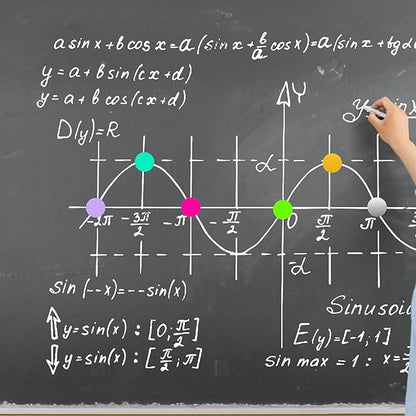 a sin x + b cos x = a (sin x + b/a cos x) = a(sin x + tg
y = a + b sin (cx + d)
y = a + b cos (cx + d)
D(y) = R
Y
y = sin x
α
-2π -3π/2 -π -π/2 0 π/2 π
-α
sin (--x) = -- sin(x)
Sinusoi
⇑ y = sin(x) : [0; π/2]
E(y) = [-1; 1]
⇓ y = sin(x) : [π/2; π]
sin max = 1 : x =